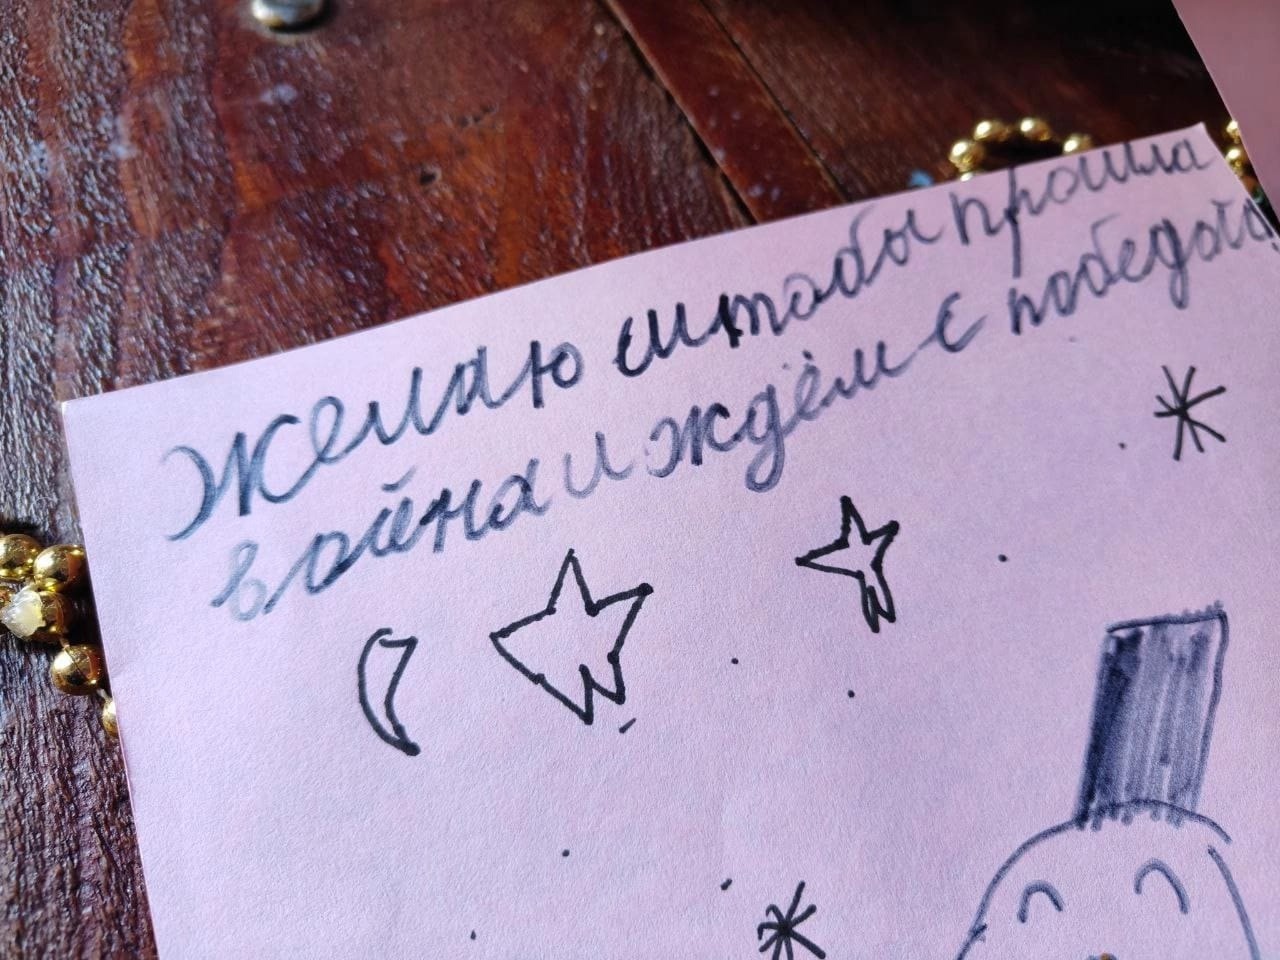 Желаю штобы прошла
война и ждём с победой